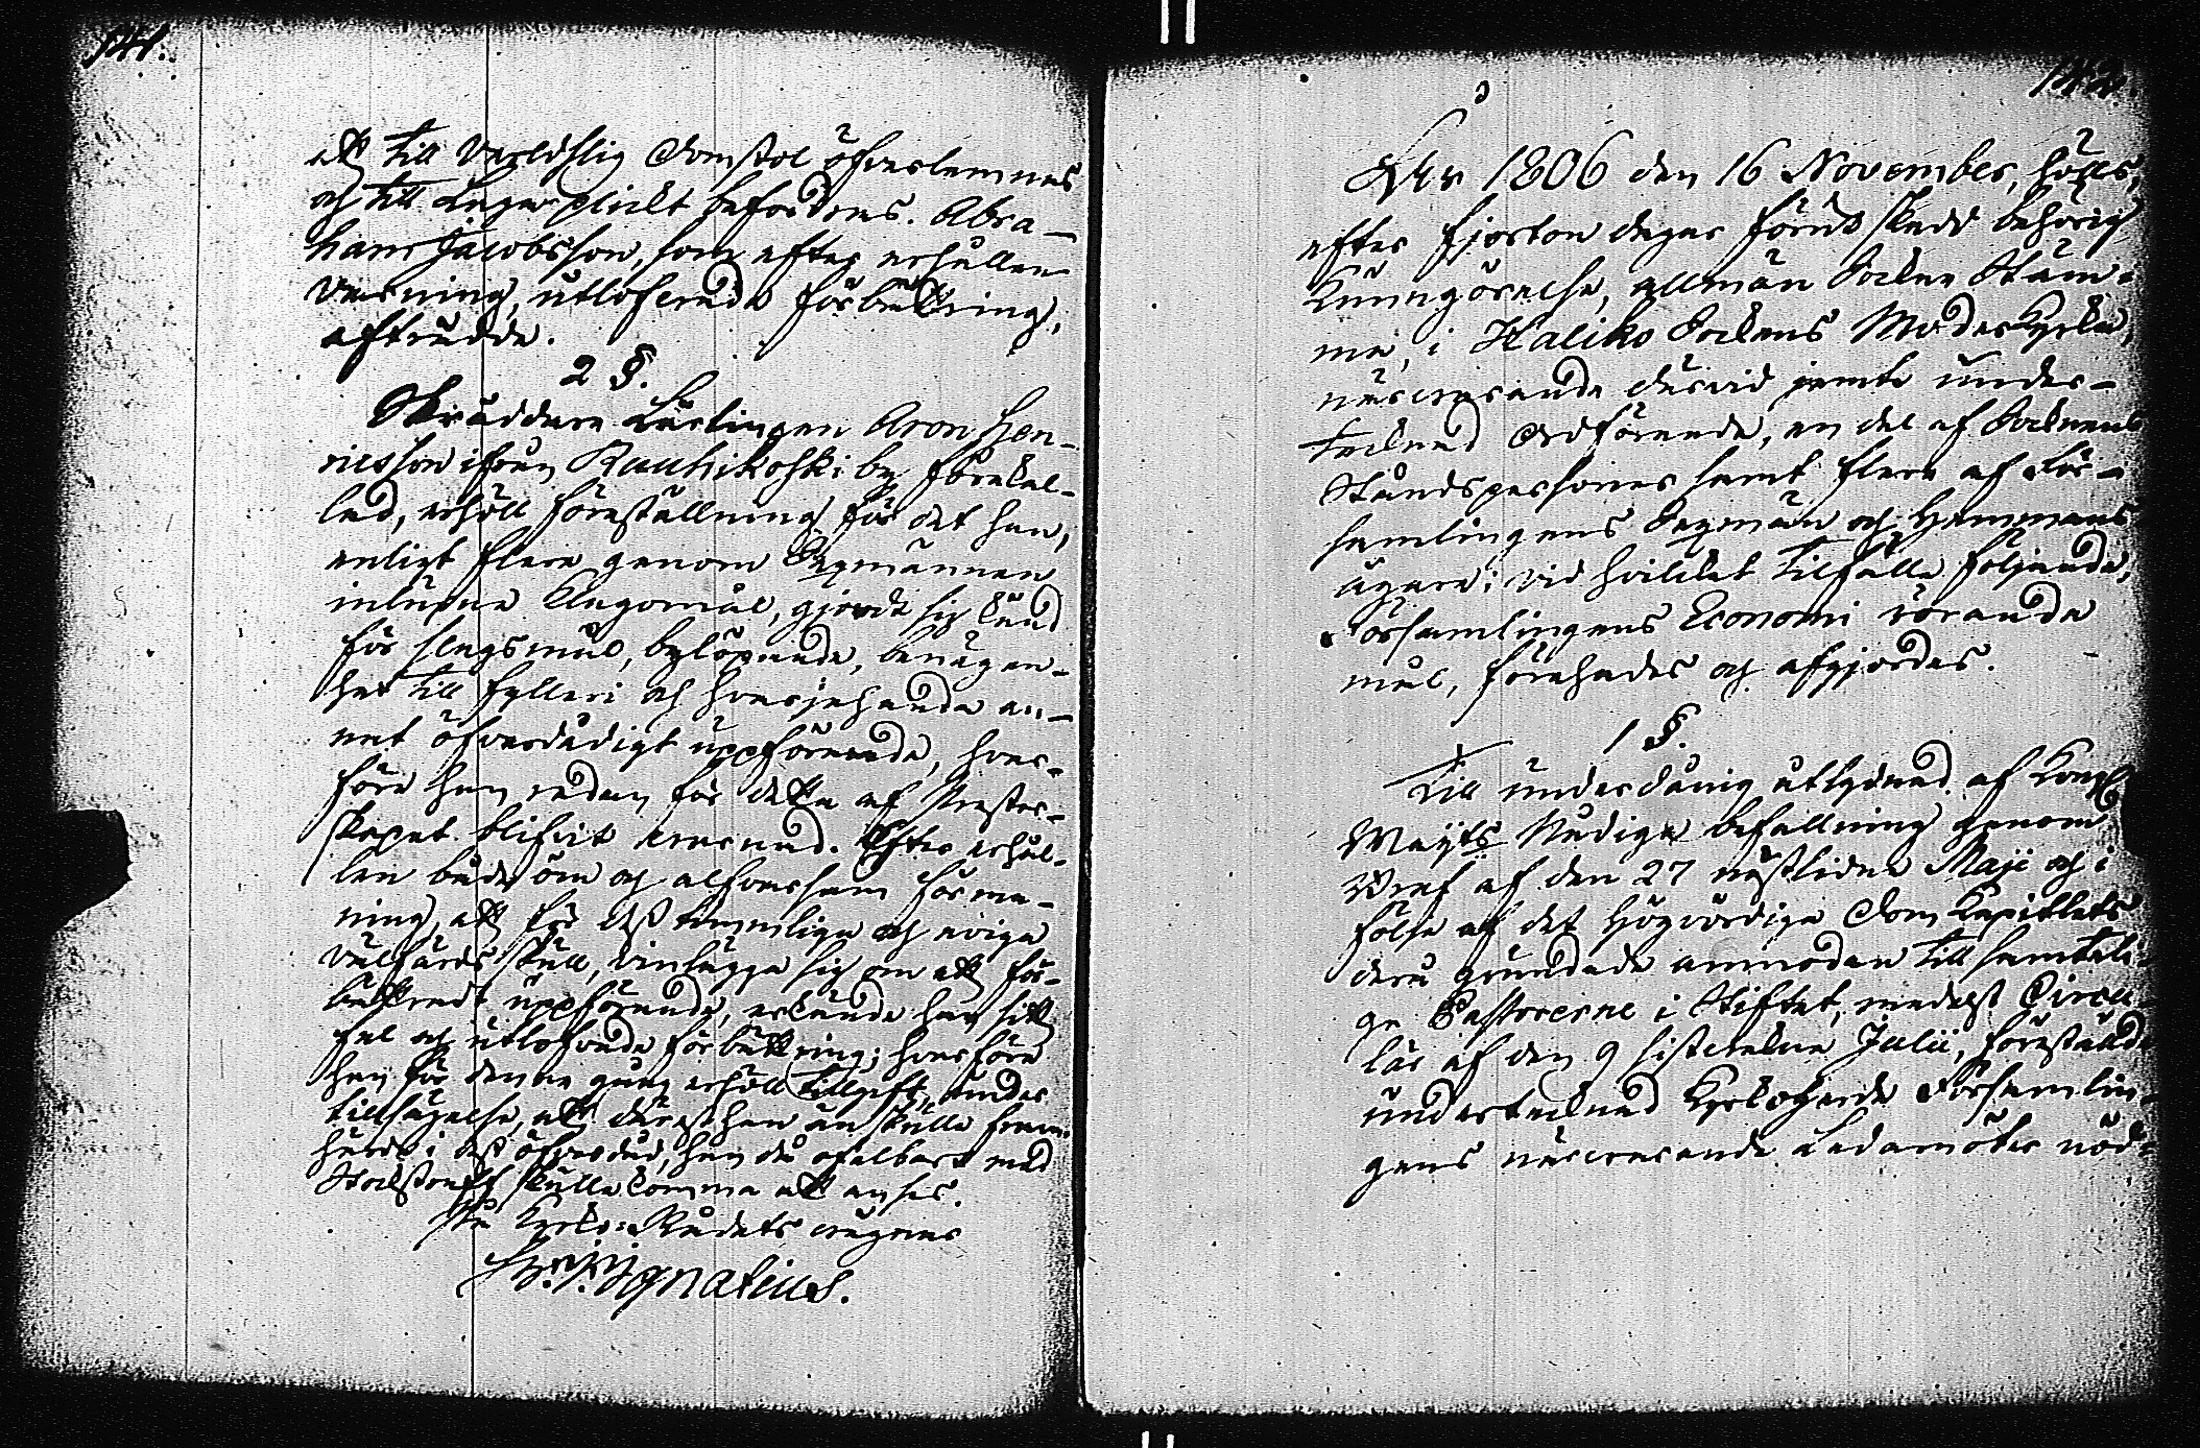 141.
att till Verldslig Domstol öfverlemnas
och till Laga plikt befordras. Abra-
ham Jacobsson, som efter erhållen
varning, utlofvade förbättring,
afträdde.
2 §.
Skräddare Lärlingen Aron Hen-
ricsson ifrån Kauhikoski by förekal-
lad, erhöll föreställning för det han,
enligt flere genom Sexmännen
inlupne klagomål, gjordt sig känd
för slagsmål, bylöpande, benägen-
het till fylleri och hvarjehanda an-
nat öfverdådigt uppförande, hvar-
före han redan för detta af Prester-
skapet blifvit varnad. Efter erhål-
len både öm och alfvarsam förma-
ning, att för dess timmliga och eviga
välfärds skull, vinlägga sig om ett för-
bättradt uppförande, erkände han sitt
fel och utlofvade förbättring; hvarföre
han för denna gång erhöll tillgift, under
tillsägelse, att därest han än skulle fram-
härda i dess öfverdåd, han då ofelbart med
Stockstraff skulle komma att anses.
På Kyrko-Rådets vägnar
Ignatius.
142.
År 1806 den 16 November, hölls,
efter fjorton dagar förut skedd behörig
Kunngörelse, allmän Sockne Stäm-
ma, i Haliko Sockens Moderkyrka,
närvarande därvid jemte under-
tecknad Ordförande, en del af Socknens
Ståndspersoner samt flere af För-
samlingens Sexmän och Hemmans
ägare; vid hvilket tilfälle följande,
Församlingens Economi rörande
mål, förehades och afgjordes.
1 §.
Till underdånig åtlydnad af Kongl
Maijts Nådiga befallning genom
Bref af den 27 nästledne Maji och i
följe af det Högvördiga Dom Kapitlets
derå grundade anmodan till samteli-
ge Pastorerne i Stiftet, medelst Circu-
lär af den 9 sistvekne Julii, föreställde
undertecknad Kyrkoherde Församlin-
gens närvarande Ledamöter nöd-